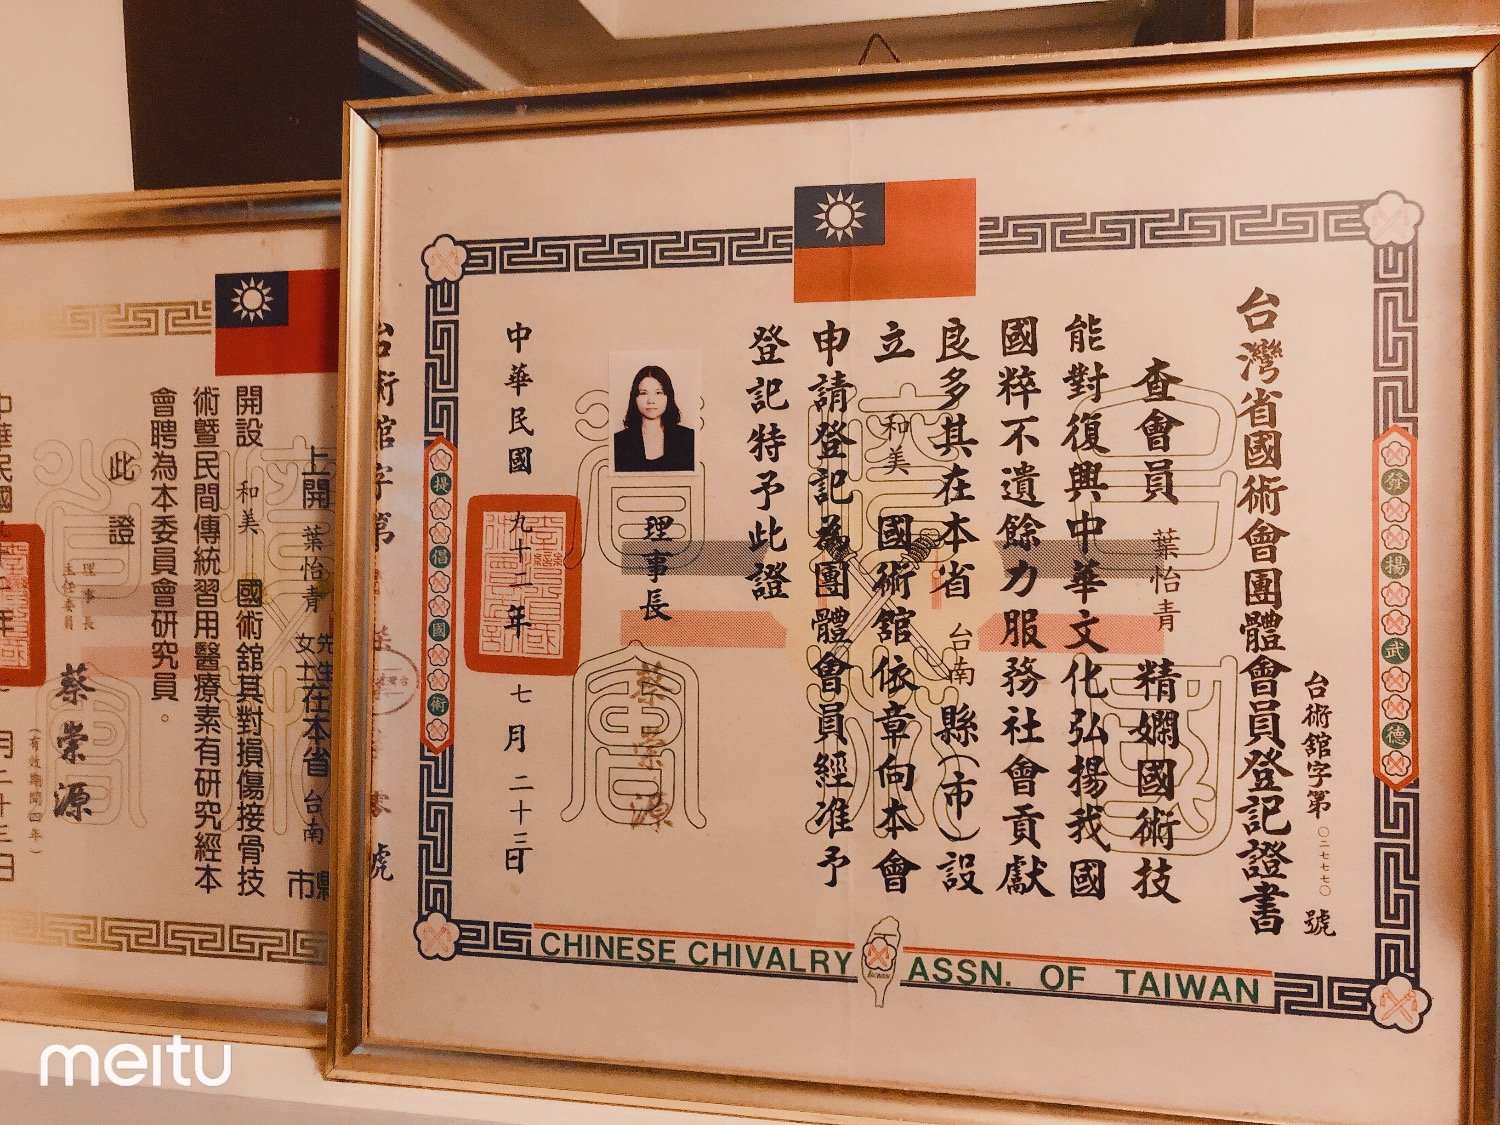 台灣省國術會團體會員登記證書
台術舘字第〇二七七七〇號
查會員 葉怡青 精嫻國術技
能對復興中華文化弘揚我國
國粹不遺餘力服務社會貢獻
良多其在本省 台南 縣(市)設
立 和美 國術舘依章向本會
申請登記為團體會員經准予
登記特予此證
理事長
蔡崇源
中華民國 九十二年 七月二十三日
發揚武德
提倡國術
CHINESE CHIVALRY ASSN. OF TAIWAN
台術舘字第
號
上開 葉怡青 先生女士在本省 台南 縣市
開設 和美 國術舘其對損傷接骨技
術暨民間傳統習用醫療素有研究經本
會聘為本委員會研究員。
此證
理事長
主任委員
蔡崇源
(有效期間四年)
中華民國
年
月二十三日
meitu